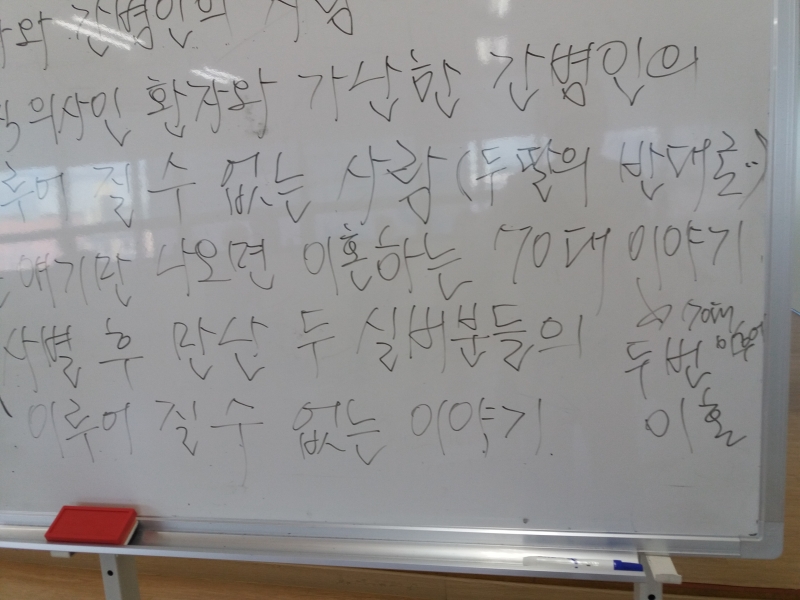 와 간병인의
의사인 환자와 가난한 간병인의
루어 질 수 없는 사람 (두딸의 반대로..)
얘기만 나오면 이혼하는 70대 이야기
사별 후 만난 두 실버분들의
이루어 질 수 없는 이야기
70대
두번
이혼